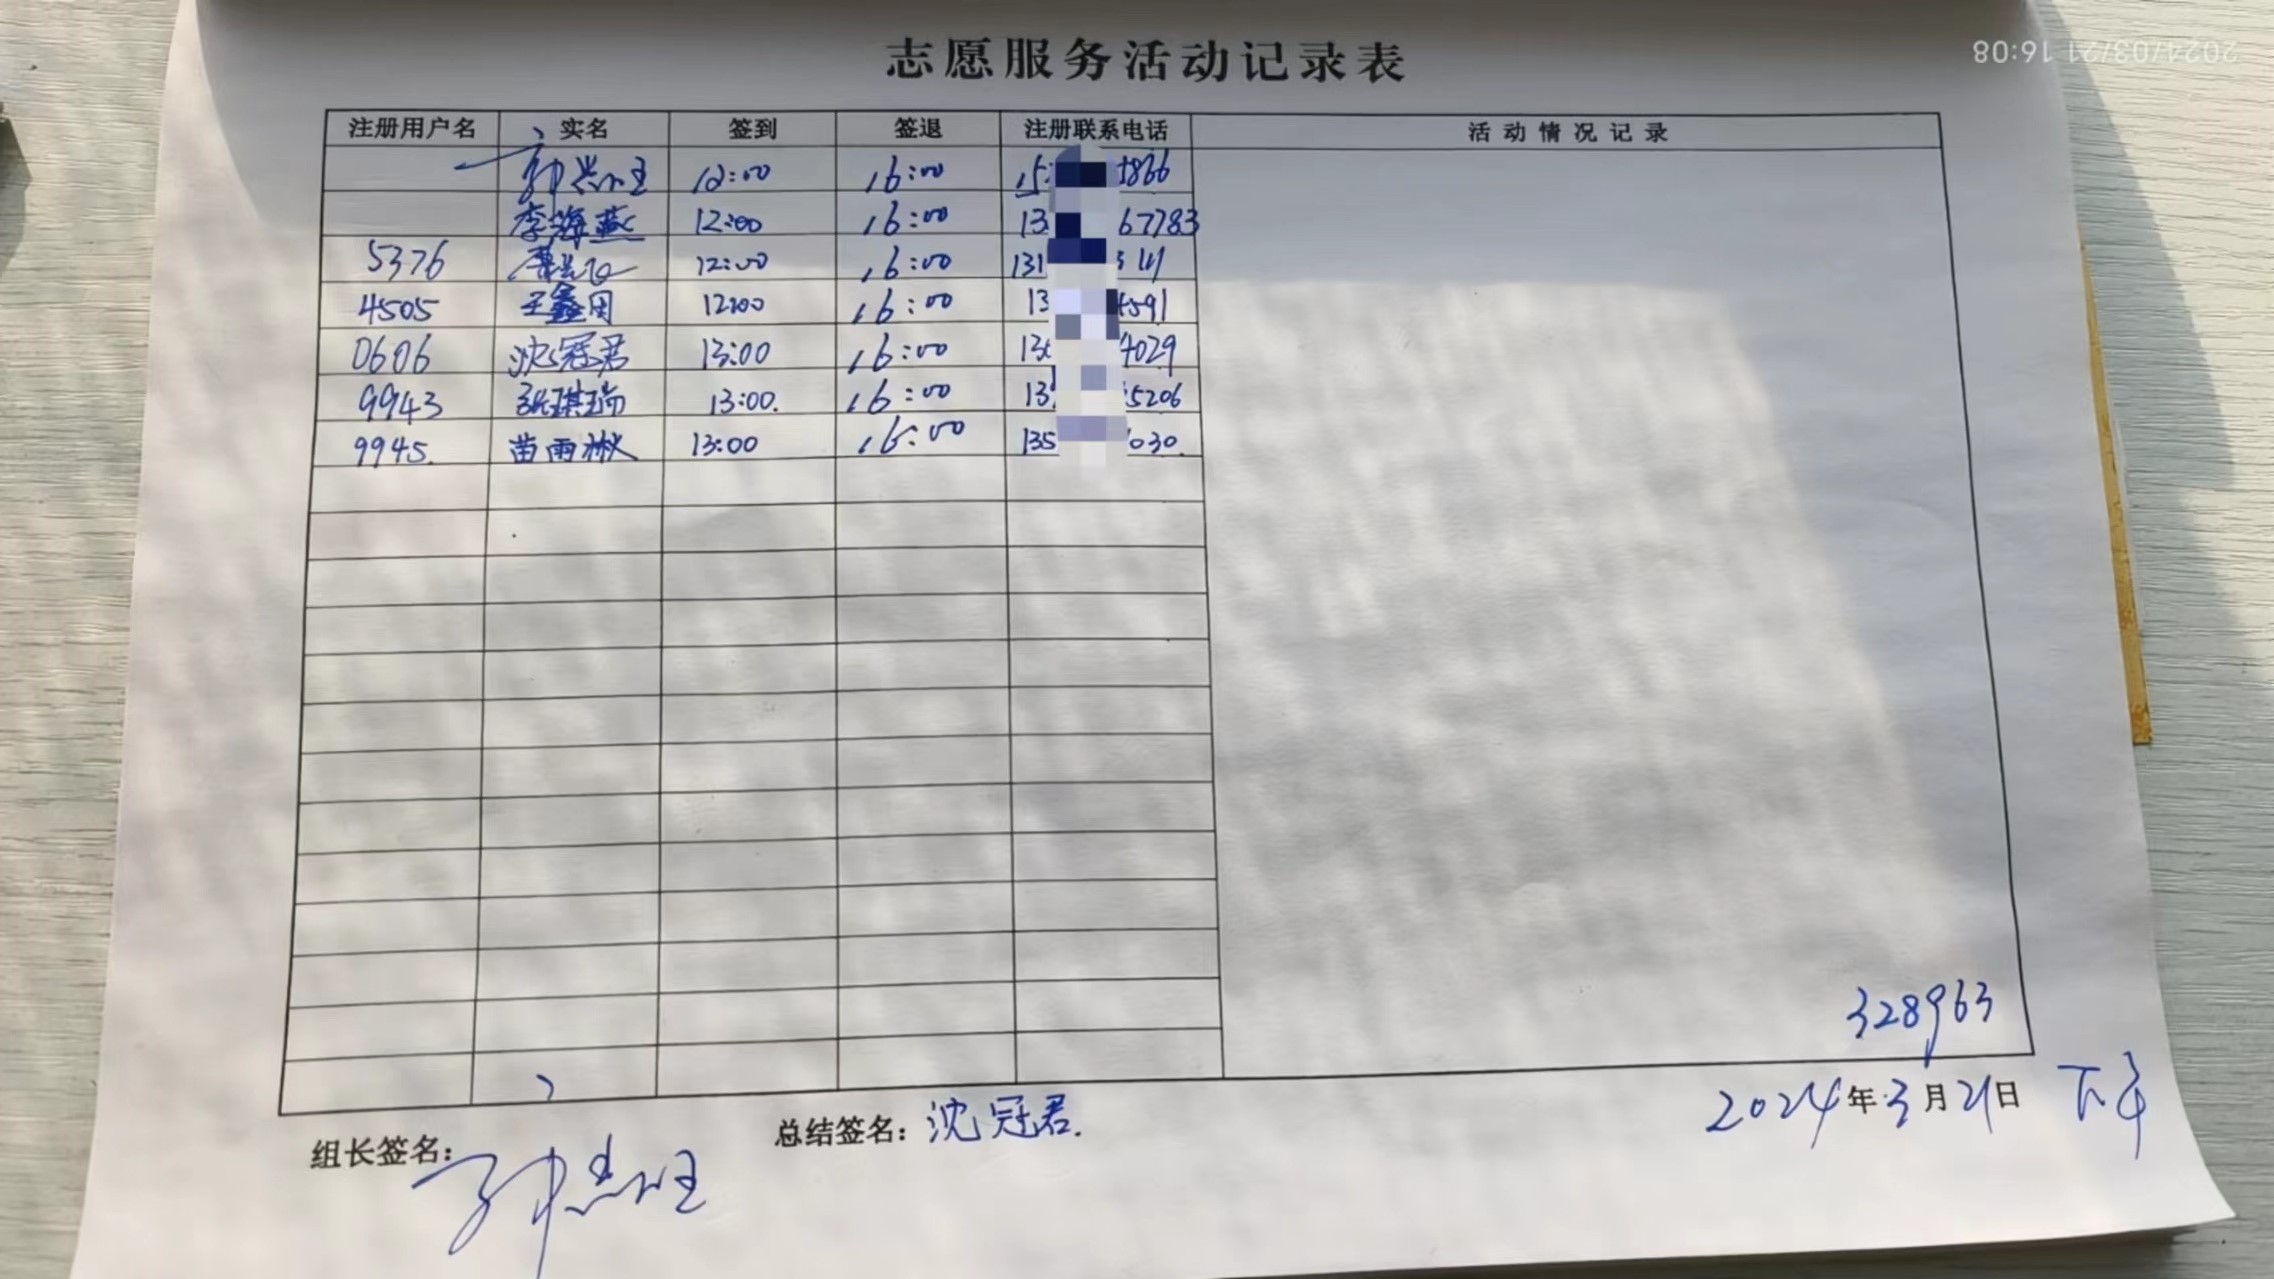 志愿服务活动记录表
2024/03/21 16:08
注册用户名 实名 签到 签退 注册联系电话 活动情况记录
12:00 16:00 15 1866
李海燕 12:00 16:00 13 67783
5376 12:00 16:00 131
4505 王鑫周 12:00 16:00 13 4591
0606 沈冠君 13:00 16:00 13 4029
9943 张琪瑞 13:00. 16:00 13 5206
9945. 苗雨楸 13:00 16:00 135 030.
328963
组长签名: 总结签名: 沈冠君. 2024年3月21日 下午